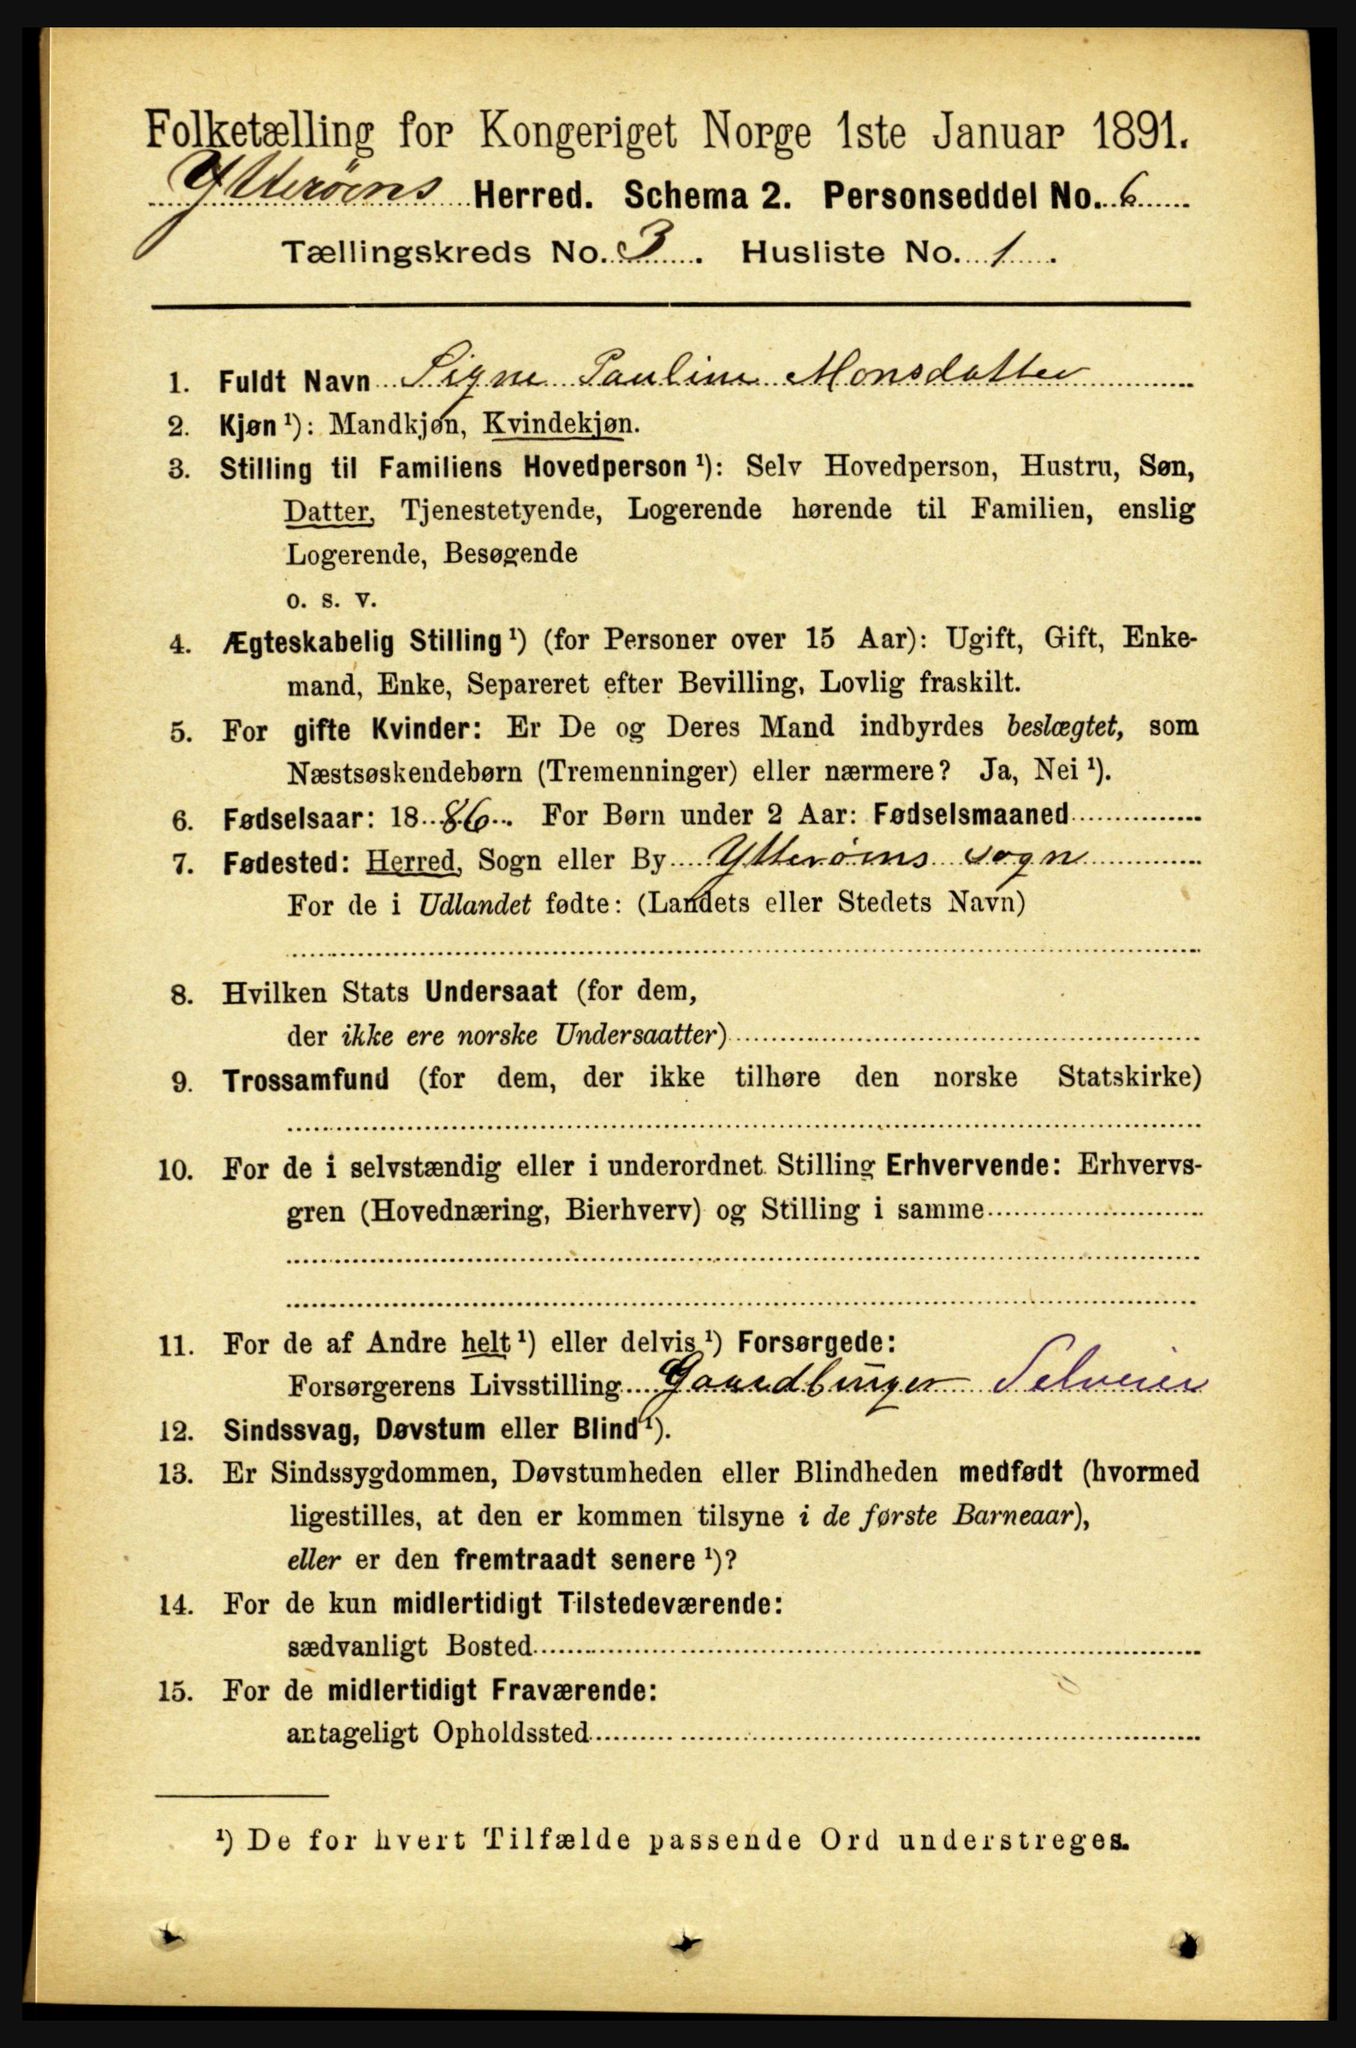 Folketælling for Kongeriget Norge 1ste Januar 1891.
Ytterøens Herred. Schema 2. Personseddel No. 6
Tællingskreds No. 3. Husliste No. 1.
1. Fuldt Navn Signe Pauline Monsdatter
2. Kjøn ¹): Mandkjøn, Kvindekjøn.
3. Stilling til Familiens Hovedperson ¹): Selv Hovedperson, Hustru, Søn,
Datter, Tjenestetyende, Logerende hørende til Familien, enslig
Logerende, Besøgende
o. s. v.
4. Ægteskabelig Stilling ¹) (for Personer over 15 Aar): Ugift, Gift, Enke-
mand, Enke, Separeret efter Bevilling, Lovlig fraskilt.
5. For gifte Kvinder: Er De og Deres Mand indbyrdes beslægtet, som
Næstsøskendebørn (Tremenninger) eller nærmere? Ja, Nei ¹).
6. Fødselsaar: 1886. For Børn under 2 Aar: Fødselsmaaned
7. Fødested: Herred, Sogn eller By Ytterøens sogn
For de i Udlandet fødte: (Landets eller Stedets Navn)
8. Hvilken Stats Undersaat (for dem,
der ikke ere norske Undersaatter)
9. Trossamfund (for dem, der ikke tilhøre den norske Statskirke)
10. For de i selvstændig eller i underordnet Stilling Erhvervende: Erhvervs-
gren (Hovednæring, Bierhverv) og Stilling i samme
11. For de af Andre helt ¹) eller delvis ¹) Forsørgede:
Forsørgerens Livsstilling Gaardbruger Selveier
12. Sindssvag, Døvstum eller Blind ¹).
13. Er Sindssygdommen, Døvstumheden eller Blindheden medfødt (hvormed
ligestilles, at den er kommen tilsyne i de første Barneaar),
eller er den fremtraadt senere ¹)?
14. For de kun midlertidigt Tilstedeværende:
sædvanligt Bosted
15. For de midlertidigt Fraværende:
antageligt Opholdssted
¹) De for hvert Tilfælde passende Ord understreges.